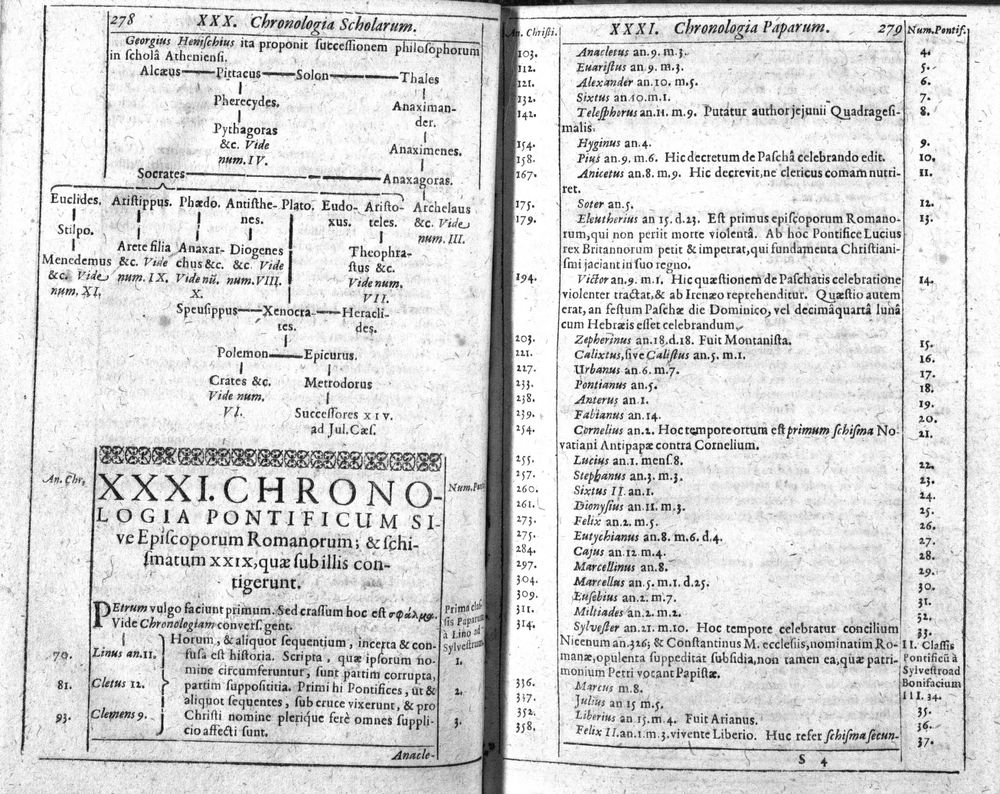 278 XXX. Chronologia Scholarum.
Georgius Henischius ita proponit successionem philosophorum
in scholâ Atheniensi.
Alcæus Pittacus Solon Thales
Pherecydes. Anaximan-
der.
Pythagoras
&c. Vide Anaximenes.
num. IV.
Socrates Anaxagoras.
Euclides. Aristippus. Phædo. Antisthe- Plato. Eudo- Aristo- Archelaus
nes. xus. teles. &c. Vide
Stilpo. num. III.
Arete filia Anaxar- Diogenes Theophra-
Menedemus &c. Vide chus &c. &c. Vide stus &c.
&c. Vide num. IX. Vide nũ. num. VIII. Vide num.
num. XI. X. VII.
Speusippus Xenocra- Heracli-
tes. des.
Polemon Epicurus.
Crates &c. Metrodorus
Vide num.
VI. Successores XIV.
ad Jul. Cæs.
An. Chr. Num. Pont.
XXXI. CHRONO-
LOGIA PONTIFICUM SI-
ve Episcoporum Romanorum; & schi-
smatum XXIX, quæ sub illis con-
tigerunt.
PEtrum vulgo faciunt primum. Sed crassum hoc est σφάλμα.
Vide Chronologiam convers. gent.
Prima clas-
sis Paparum
à Lino ad
Sylvestrum.
Horum, & aliquot sequentium, incerta & con-
70. Linus an. 11. fusa est historia. Scripta, quæ ipsorum no- 1.
mine circumferuntur, sunt partim corrupta,
81. Cletus 12. partim supposititia. Primi hi Pontifices, ut & 2.
aliquot sequentes, sub cruce vixerunt, & pro
93. Clemens 9. Christi nomine plerique ferè omnes suppli- 3.
cio affecti sunt.
Anacle-
An. Christi. XXXI. Chronologia Paparum. 279 Num. Pontif.
103. Anacletus an. 9. m. 3. 4.
112. Euaristus an. 9. m. 3. 5.
121. Alexander an. 10. m. 5. 6.
132. Sixtus an. 10. m. 1. 7.
142. Telesphorus an. 11. m. 9. Putatur author jejunii Quadragesi- 8.
malis.
154. Hyginus an. 4. 9.
158. Pius an. 9. m. 6. Hic decretum de Paschâ celebrando edit. 10.
167. Anicetus an. 8. m. 9. Hic decrevit, ne clericus comam nutri- 11.
ret.
175. Soter an. 5. 12.
179. Eleutherius an 15. d. 23. Est primus episcoporum Romano- 13.
rum, qui non periit morte violentâ. Ab hoc Pontifice Lucius
rex Britannorum petit & impetrat, qui fundamenta Christiani-
smi jaciant in suo regno.
194. Victor an. 9. m. 1. Hic quæstionem de Paschatis celebratione 14.
violenter tractat, & ab Irenæo reprehenditur. Quæstio autem
erat, an festum Paschæ die Dominico, vel decimâquartâ lunâ
cum Hebræis esset celebrandum.
203. Zepherinus an. 18. d. 18. Fuit Montanista. 15.
221. Calixtus, sive Calistus an. 5. m. 1. 16.
227. Urbanus an. 6. m. 7. 17.
233. Pontianus an. 5. 18.
238. Anterus an. 1. 19.
239. Fabianus an. 14. 20.
254. Cornelius an. 2. Hoc tempore ortum est primum schisma No- 21.
vatiani Antipapæ contra Cornelium.
255. Lucius an. 1. mens. 8. 22.
257. Stephanus an. 3. m. 3. 23.
260. Sixtus II. an. 1. 24.
261. Dionysius an. 11. m. 3. 25.
273. Felix an. 2. m. 5. 26.
275. Eutychianus an. 8. m. 6. d. 4. 27.
284. Cajus an. 12 m. 4. 28.
297. Marcellinus an. 8. 29.
304. Marcellus an. 5. m. 1. d. 25. 30.
309. Eusebius an. 2. m. 7. 31.
311. Miltiades an. 2. m. 2. 32.
314. Sylvester an. 21. m. 10. Hoc tempore celebratur concilium 33.
Nicenum an. 326; & Constantinus M. ecclesiis, nominatim Ro-
manæ, opulenta suppeditat subsidia, non tamen ea, quæ patri-
monium Petri vocant Papistæ.
II. Classis
Pontificũ à
Sylvestro ad
Bonifacium
III. 34.
336. Marcus m. 8.
337. Julius an 15 m. 5. 35.
352. Liberius an 15. m. 4. Fuit Arianus. 36.
358. Felix II. an. 1. m. 3. vivente Liberio. Huc refer schisma secun- 37.
S 4